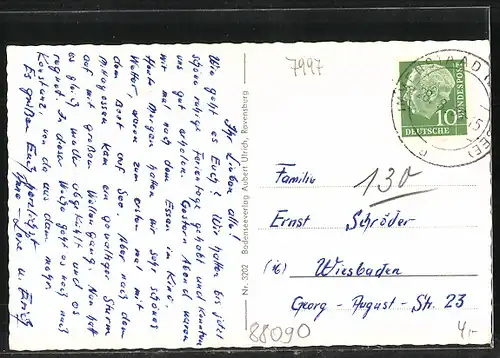 Ihr Lieben alle!
Wie geht es Euch? Wir hatten bis jetzt
schöne ruhige Ferientage gehabt und konnten
uns gut erholen. Gestern Abend waren
wir mal nach dem Essen im Kino.
Heute Morgen hatten wir sehr schönes
Wetter, waren zum ersten mal mit
dem Boot auf See. Aber nach dem
Mittagessen kam ein gewaltiger Sturm
auf mit großem Wellengang. Nun hat
es gleich wieder abgekühlt und es
regnet. In dieser Woche geht es noch nach
Konstanz, von da aus dann mehr.
Es grüßen Euch herzlichst
Anne-Lore u.
Nr. 3202 Bodenseeverlag Aubert Ulrich, Ravensburg
7997
10
DEUTSCHE
BUNDESPOST
Familie
130
Ernst Schröder
(16) Wiesbaden
Georg-August-Str. 23
88090
4,-